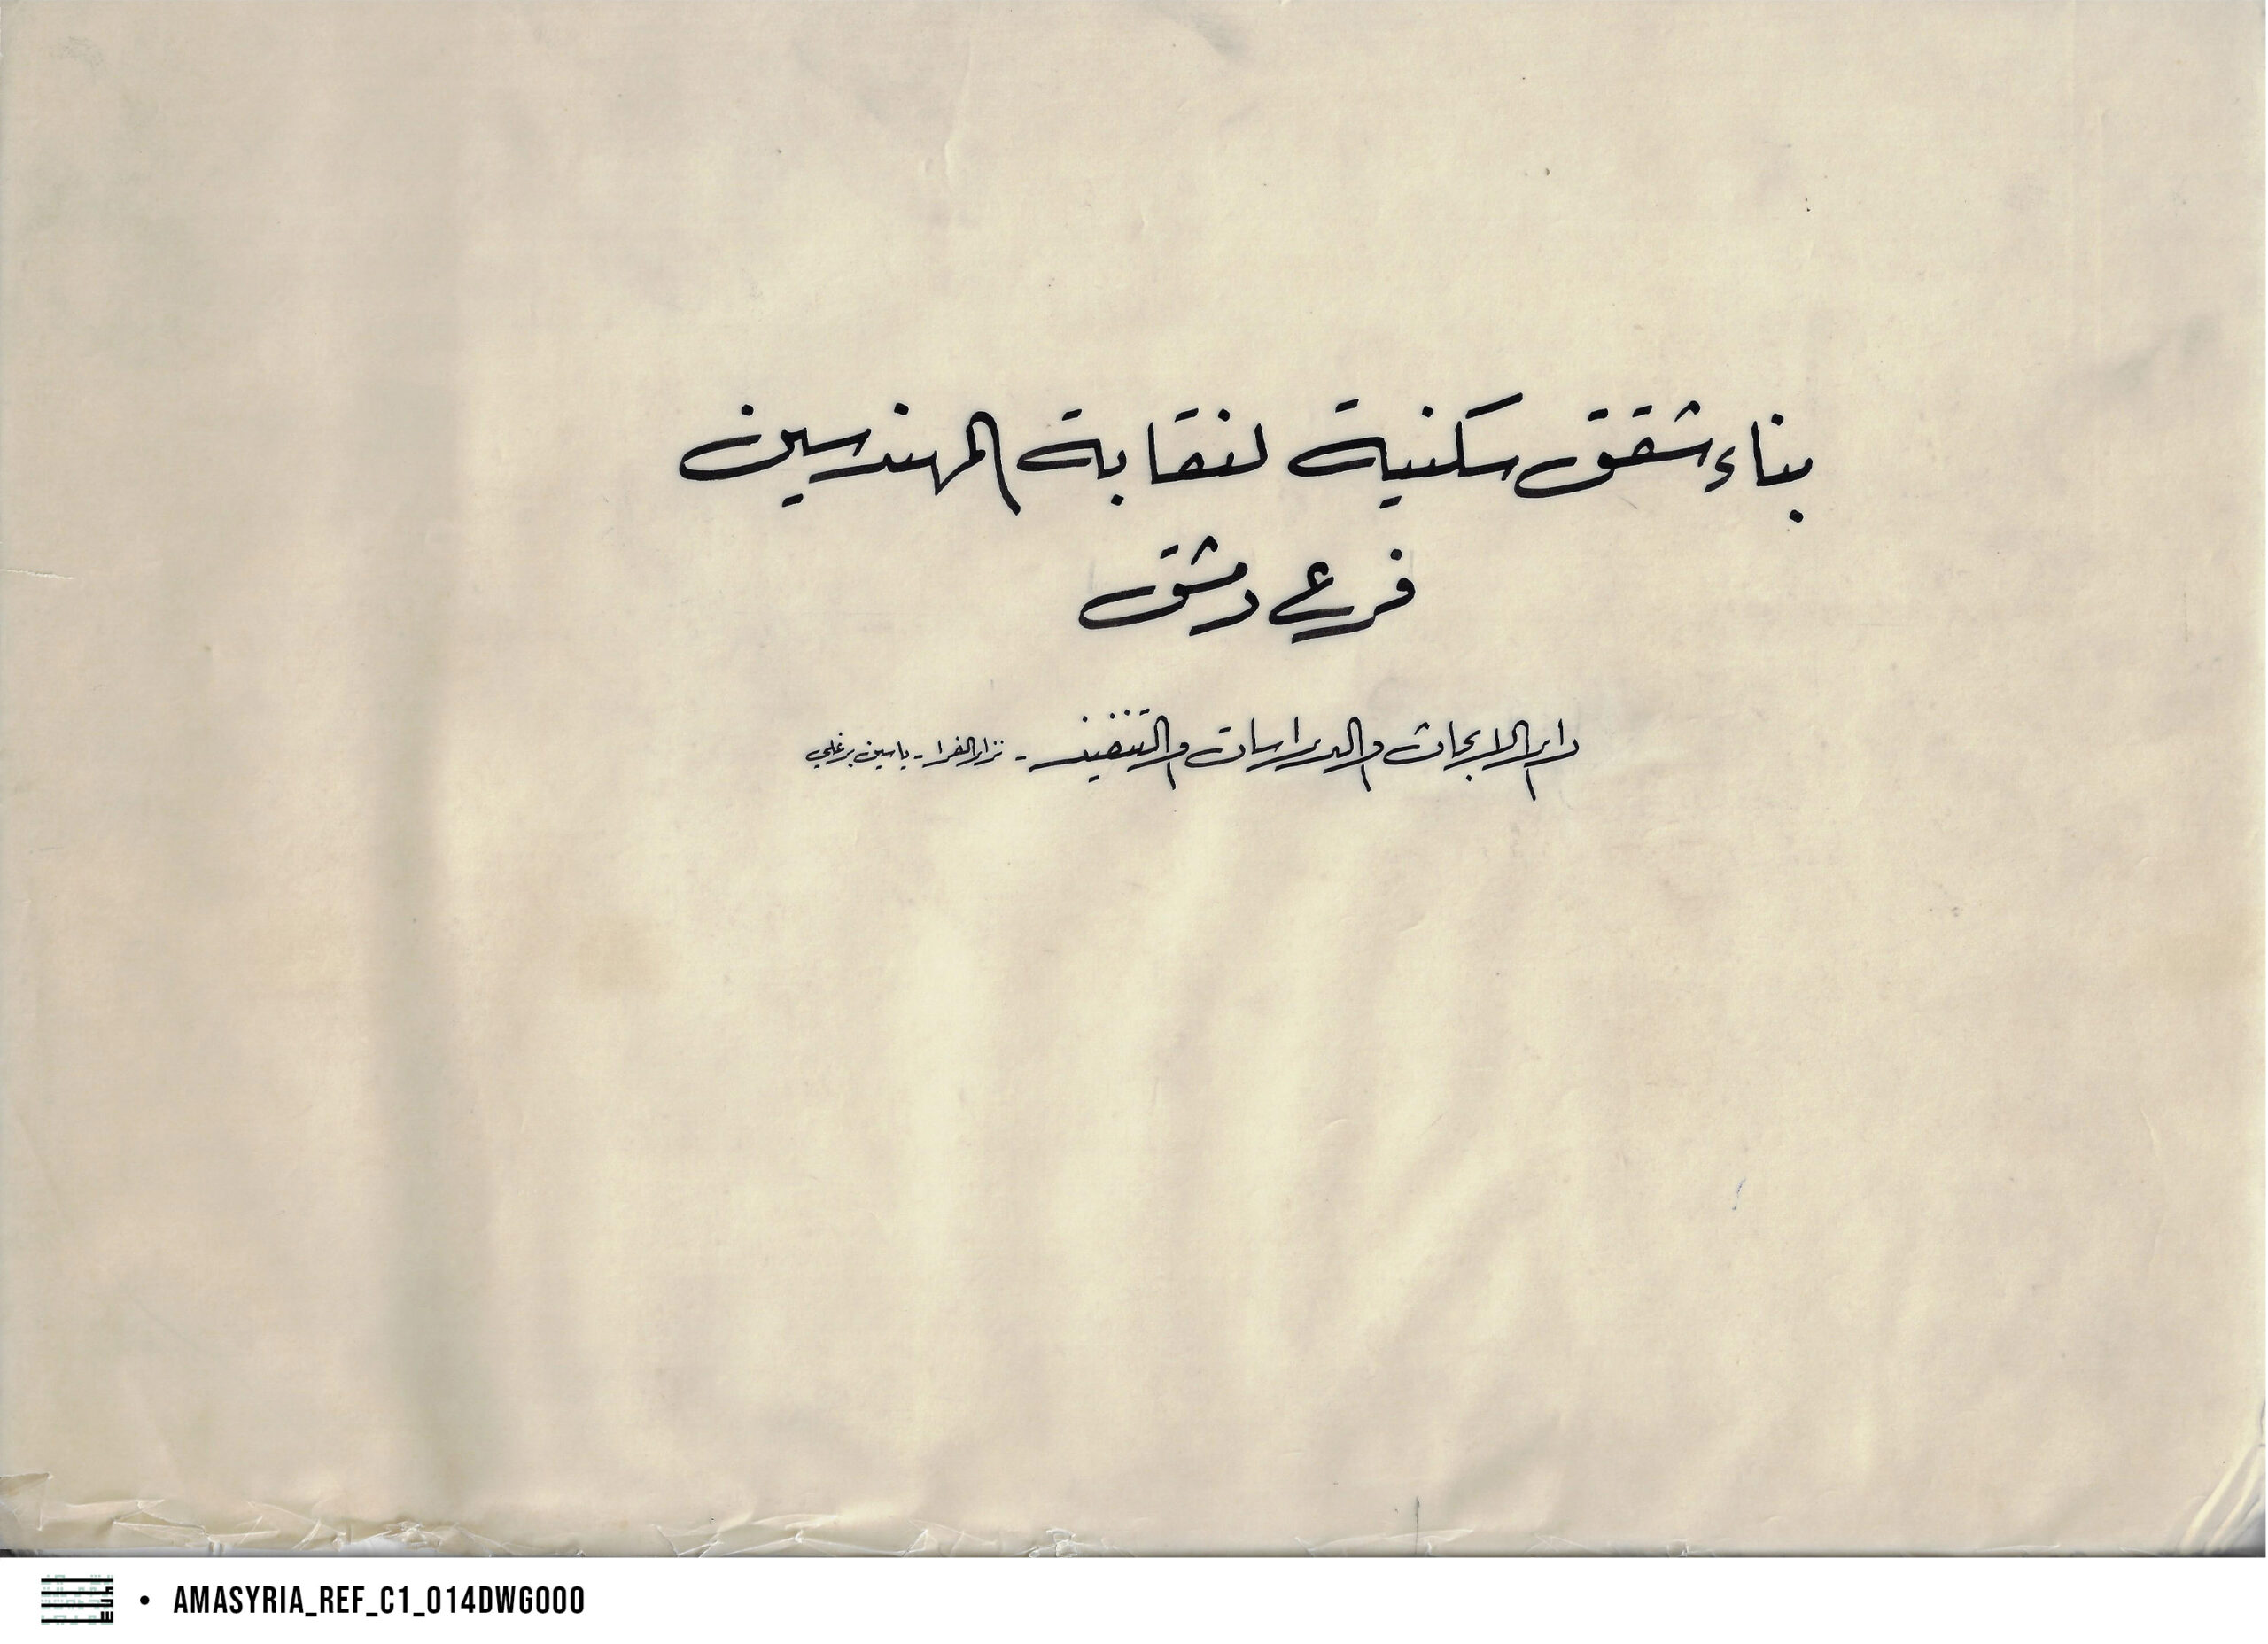 بناء شقق سكنية لنقابة المهندسين
فرع دمشق
دار الابحاث والدراسات والتنفيذ - نزار الفرا - ياسين برغلي
AMASYRIA_REF_C1_014DWG000